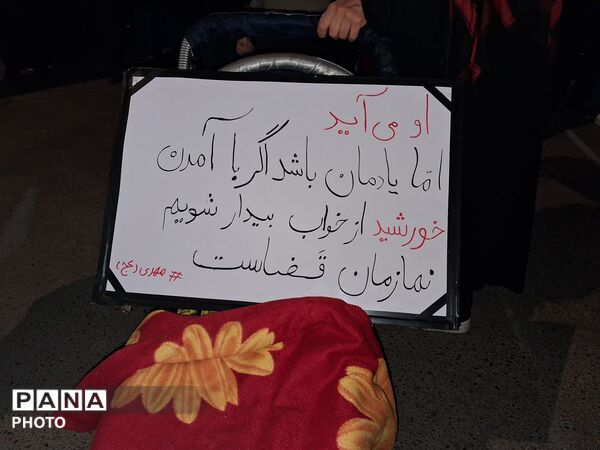 او می‌آید
امّا یادمان باشد اگر با آمدن
خورشید از خواب بیدار شویم
نمازمان قَضاست
PANA
PHOTO